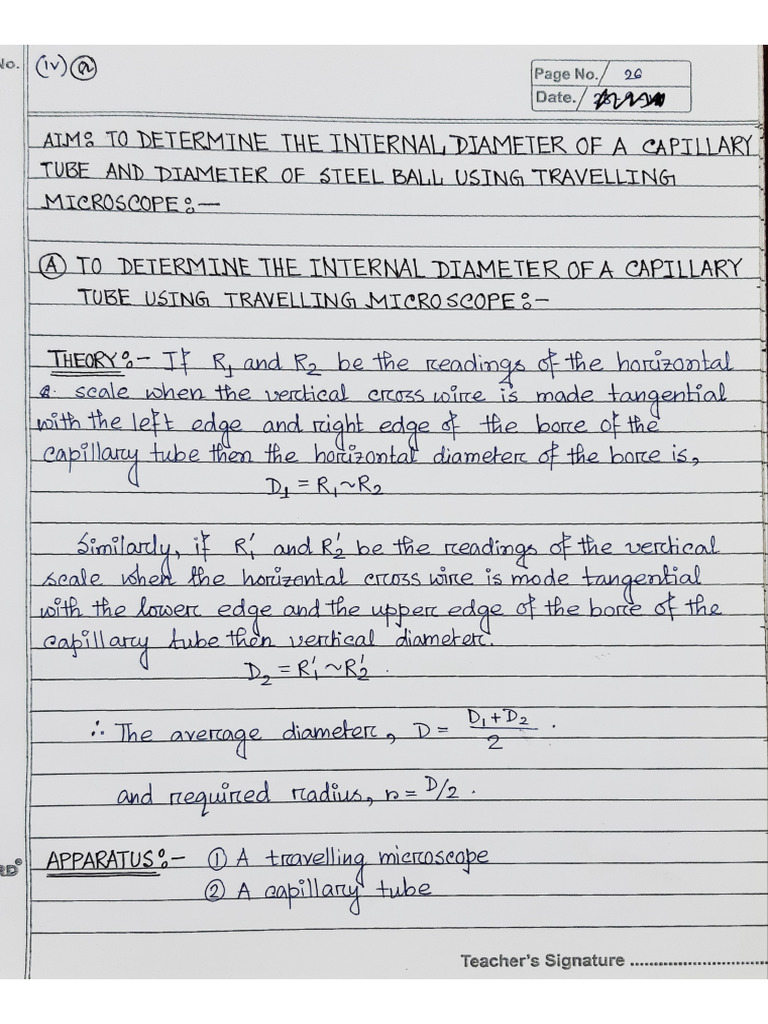 No.
(iv) (a)
Page No. 26
Date.
AIM: TO DETERMINE THE INTERNAL DIAMETER OF A CAPILLARY
TUBE AND DIAMETER OF STEEL BALL USING TRAVELLING
MICROSCOPE:—
(A) TO DETERMINE THE INTERNAL DIAMETER OF A CAPILLARY
TUBE USING TRAVELLING MICROSCOPE:-
THEORY:- If R₁ and R₂ be the readings of the horizontal
scale when the vertical cross wire is made tangential
with the left edge and right edge of the bore of the
capillary tube then the horizontal diameter of the bore is,
D₁ = R₁~R₂
Similarly, if R₁' and R₂' be the readings of the vertical
scale when the horizental cross wire is mode tangential
with the lower edge and the upper edge of the bore of the
capillary tube then vertical diameter.
D₂ = R₁' ~ R₂'.
∴ The average diameter, D = (D₁+D₂)/2.
and required radius, r = D/2.
APPARATUS:- ① A travelling microscope
② A capillary tube
RD®
Teacher's Signature ..........................